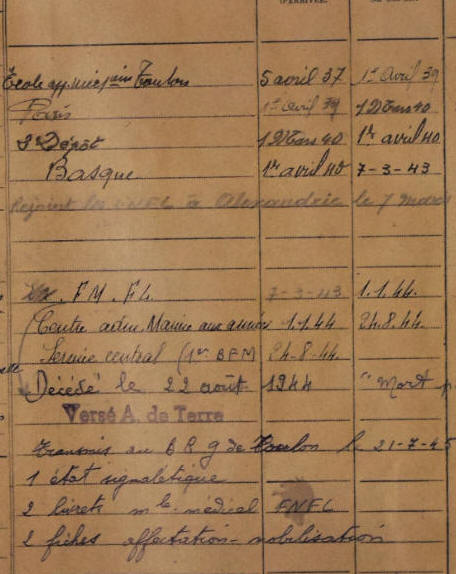 D'ARRIVÉE.
École app. méc^iciens Toulon 5 avril 37 1er Avril 39
Paris 1er Avril 39 1 Mars 40
3e Dépôt 1 Mars 40 1er avril 40
Basque 1er avril 40 7-3-43
Rejoint les FNFL à Alexandrie le 7 Mars
F.M.F.L. 7-3-43 1.1.44.
Centre adm. Marine aux armées 1.1.44 24.8.44.
Service central (1er BFM 24-8-44.
Décédé le 22 août 1944 "Mort
Versé A. de Terre
Transmis au B R g de Toulon le 21-7-45
1 état signalétique
2 livrets m le médical FNFL
2 fiches affectation-mobilisation